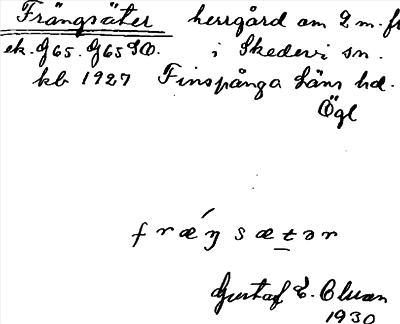 Frängsäter herrgård om 2 m. fr
ek. G65. G65SO. i Skedevi sn.
kb 1927 Finspånga läns hd.
Ögl
fræ´ŋsætər
Gustaf E. Cluan
1930